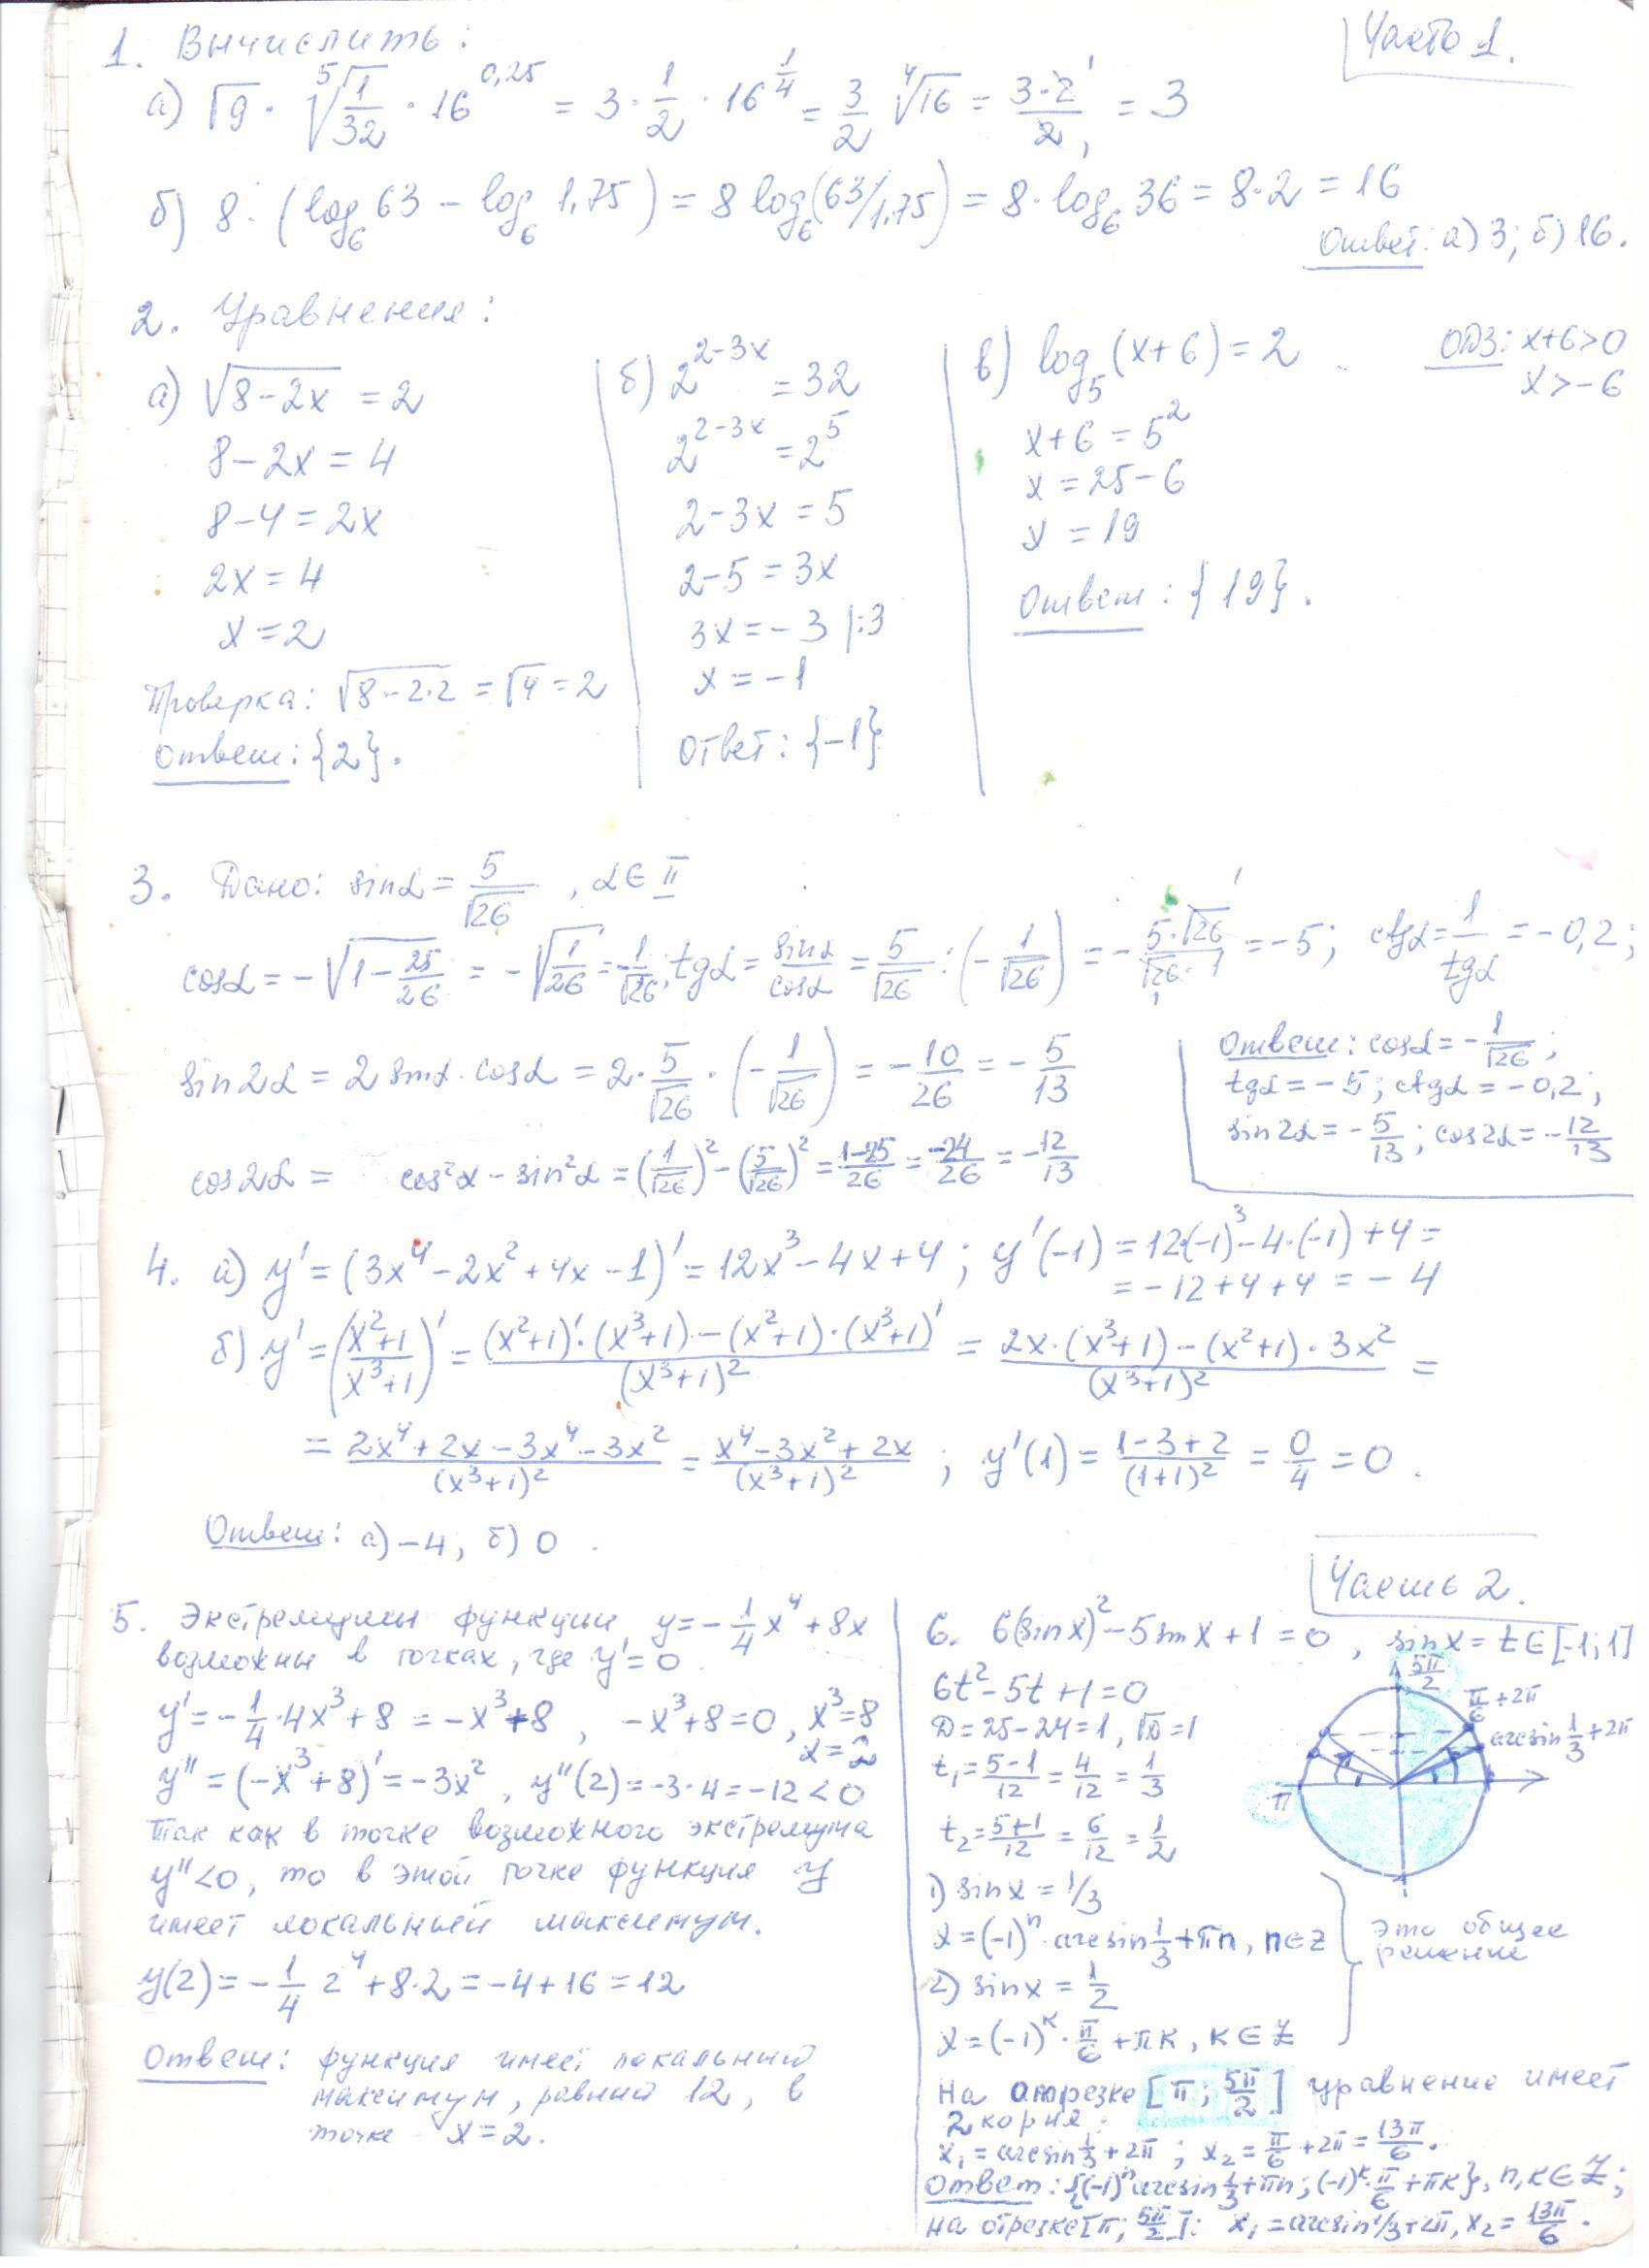 Часть 1.
1. Вычислить:
а) √9 · ⁵√(1/32) · 16^0,25 = 3 · 1/2 · 16^(1/4) = 3/2 ⁴√16 = (3·2)/2 = 3
б) 8 · (log₆63 − log₆1,75) = 8 log₆(63/1,75) = 8 · log₆36 = 8·2 = 16
Ответ: а) 3; б) 16.
2. Уравнения:
а) √(8−2x) = 2
8−2x = 4
8−4 = 2x
2x = 4
x = 2
Проверка: √(8−2·2) = √4 = 2
Ответ: {2}.
б) 2^(2−3x) = 32
2^(2−3x) = 2⁵
2−3x = 5
2−5 = 3x
3x = −3 |:3
x = −1
Ответ: {−1}
в) log₅(x+6) = 2
ОДЗ: x+6>0
x>−6
x+6 = 5²
x = 25−6
x = 19
Ответ: {19}.
3. Дано: sinα = 5/√26, α∈II
cosα = −√(1−25/26) = −√(1/26) = −1/√26; tgα = sinα/cosα = 5/√26 : (−1/√26) = −(5·√26)/(√26·1) = −5; ctgα = 1/tgα = −0,2;
sin2α = 2sinα·cosα = 2·5/√26·(−1/√26) = −10/26 = −5/13
cos2α = cos²α − sin²α = (1/√26)² − (5/√26)² = (1−25)/26 = −24/26 = −12/13
Ответ: cosα = −1/√26;
tgα = −5; ctgα = −0,2;
sin2α = −5/13; cos2α = −12/13
4. а) y' = (3x⁴−2x²+4x−1)' = 12x³−4x+4; y'(−1) = 12·(−1)³−4·(−1)+4 =
= −12+4+4 = −4
б) y' = ((x²+1)/(x³+1))' = ((x²+1)'·(x³+1)−(x²+1)·(x³+1)')/(x³+1)² = (2x·(x³+1)−(x²+1)·3x²)/(x³+1)² =
= (2x⁴+2x−3x⁴−3x²)/(x³+1)² = (x⁴−3x²+2x)/(x³+1)²; y'(1) = (1−3+2)/(1+1)² = 0/4 = 0.
Ответ: а) −4; б) 0.
Часть 2.
5. Экстремумы функции y = −1/4 x⁴+8x
возможны в точках, где y' = 0.
y' = −1/4·4x³+8 = −x³+8, −x³+8=0, x³=8
x=2
y'' = (−x³+8)' = −3x², y''(2) = −3·4 = −12 < 0
Так как в точке возможного экстремума
y''<0, то в этой точке функция y
имеет локальный максимум.
y(2) = −1/4 2⁴+8·2 = −4+16 = 12
Ответ: функция имеет локальный
максимум, равный 12, в
точке x=2.
6. 6(sinx)²−5sinx+1=0, sinx = t∈[−1;1]
6t²−5t+1=0
D=25−24=1, √D=1
t₁ = (5−1)/12 = 4/12 = 1/3
t₂ = (5+1)/12 = 6/12 = 1/2
5π/2
π/6+2π
arcsin 1/3+2π
π
1) sinx = 1/3
x = (−1)ⁿ·arcsin 1/3+πn, n∈Z
2) sinx = 1/2
x = (−1)ᵏ·π/6+πk, k∈Z
это общее
решение
На отрезке [π; 5π/2] уравнение имеет
2 корня:
x₁ = arcsin 1/3+2π; x₂ = π/6+2π = 13π/6.
Ответ: {(−1)ⁿ arcsin 1/3+πn; (−1)ᵏ·π/6+πk}, n,k∈Z;
на отрезке [π; 5π/2]: x₁ = arcsin 1/3+2π, x₂ = 13π/6.